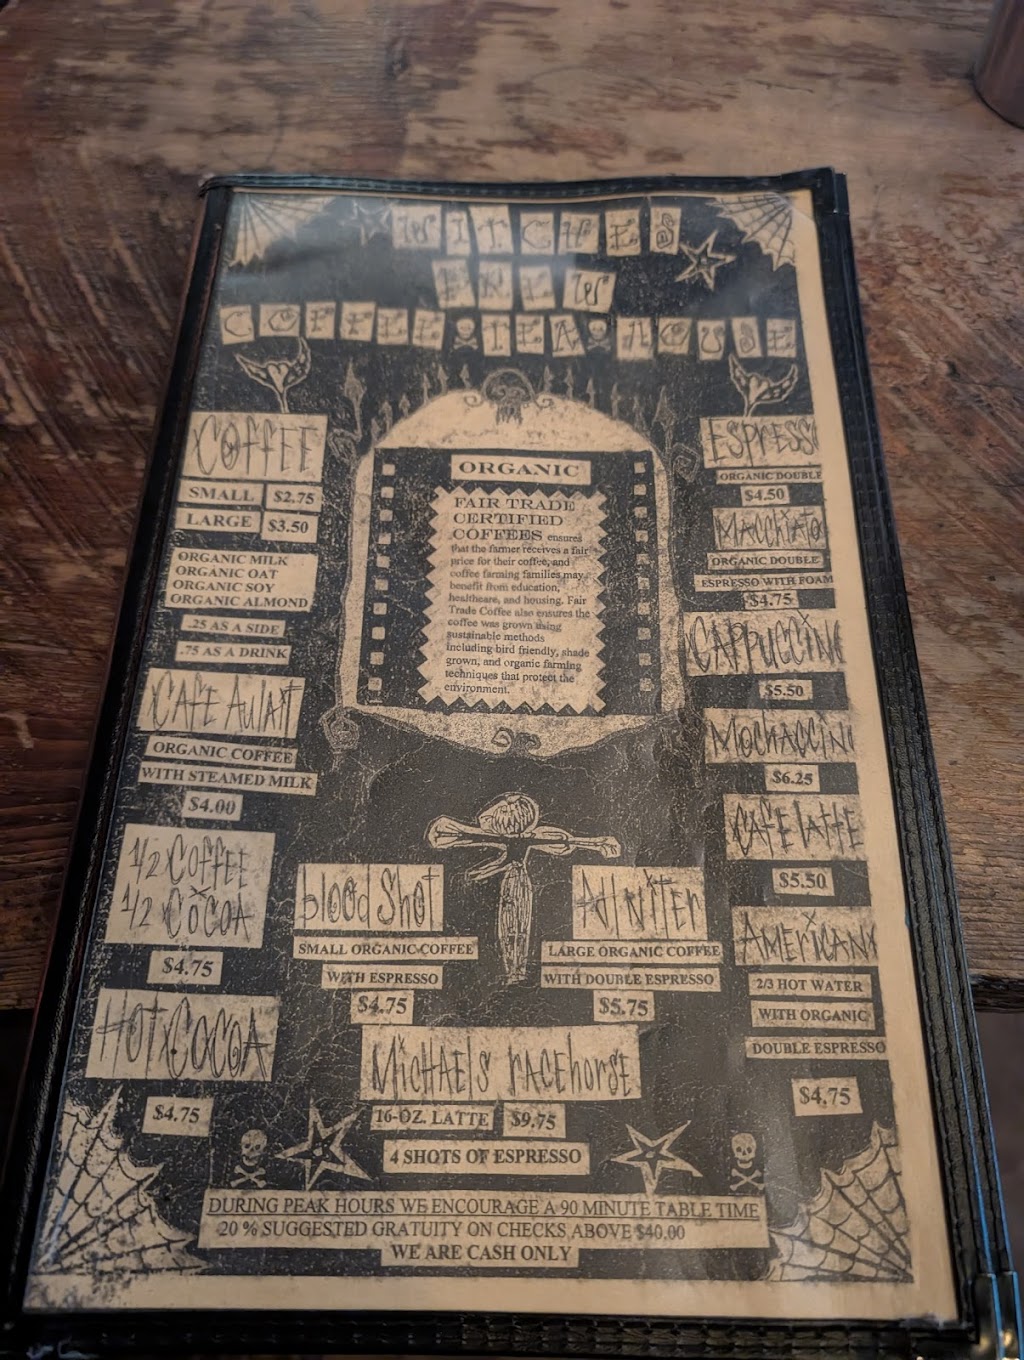 WITCHES
BREW
COFFEE TEA HOUSE
COFFEE
SMALL $2.75
LARGE $3.50
ORGANIC MILK
ORGANIC OAT
ORGANIC SOY
ORGANIC ALMOND
.25 AS A SIDE
.75 AS A DRINK
CAFE AULAIT
ORGANIC COFFEE
WITH STEAMED MILK
$4.00
1/2 COFFEE
1/2 COCOA
$4.75
HOT COCOA
$4.75
ORGANIC
FAIR TRADE
CERTIFIED
COFFEES ensures
that the farmer receives a fair
price for their coffee, and
coffee farming families may
benefit from education,
healthcare, and housing. Fair
Trade Coffee also ensures the
coffee was grown using
sustainable methods
including bird friendly, shade
grown, and organic farming
techniques that protect the
environment.
blood Shot
SMALL ORGANIC COFFEE
WITH ESPRESSO
$4.75
LARGE ORGANIC COFFEE
WITH DOUBLE ESPRESSO
$5.75
MiCHAEls rACEhorSE
16-OZ. LATTE $9.75
4 SHOTS OF ESPRESSO
ESPRESSO
ORGANIC DOUBLE
$4.50
MACCHIATO
ORGANIC DOUBLE
ESPRESSO WITH FOAM
$4.75
CAPPUCCIN
$5.50
MOCHACCIN
$6.25
CAFE lATTE
$5.50
AMERICAN
2/3 HOT WATER
WITH ORGANIC
DOUBLE ESPRESSO
$4.75
DURING PEAK HOURS WE ENCOURAGE A 90 MINUTE TABLE TIME
20 % SUGGESTED GRATUITY ON CHECKS ABOVE $40.00
WE ARE CASH ONLY